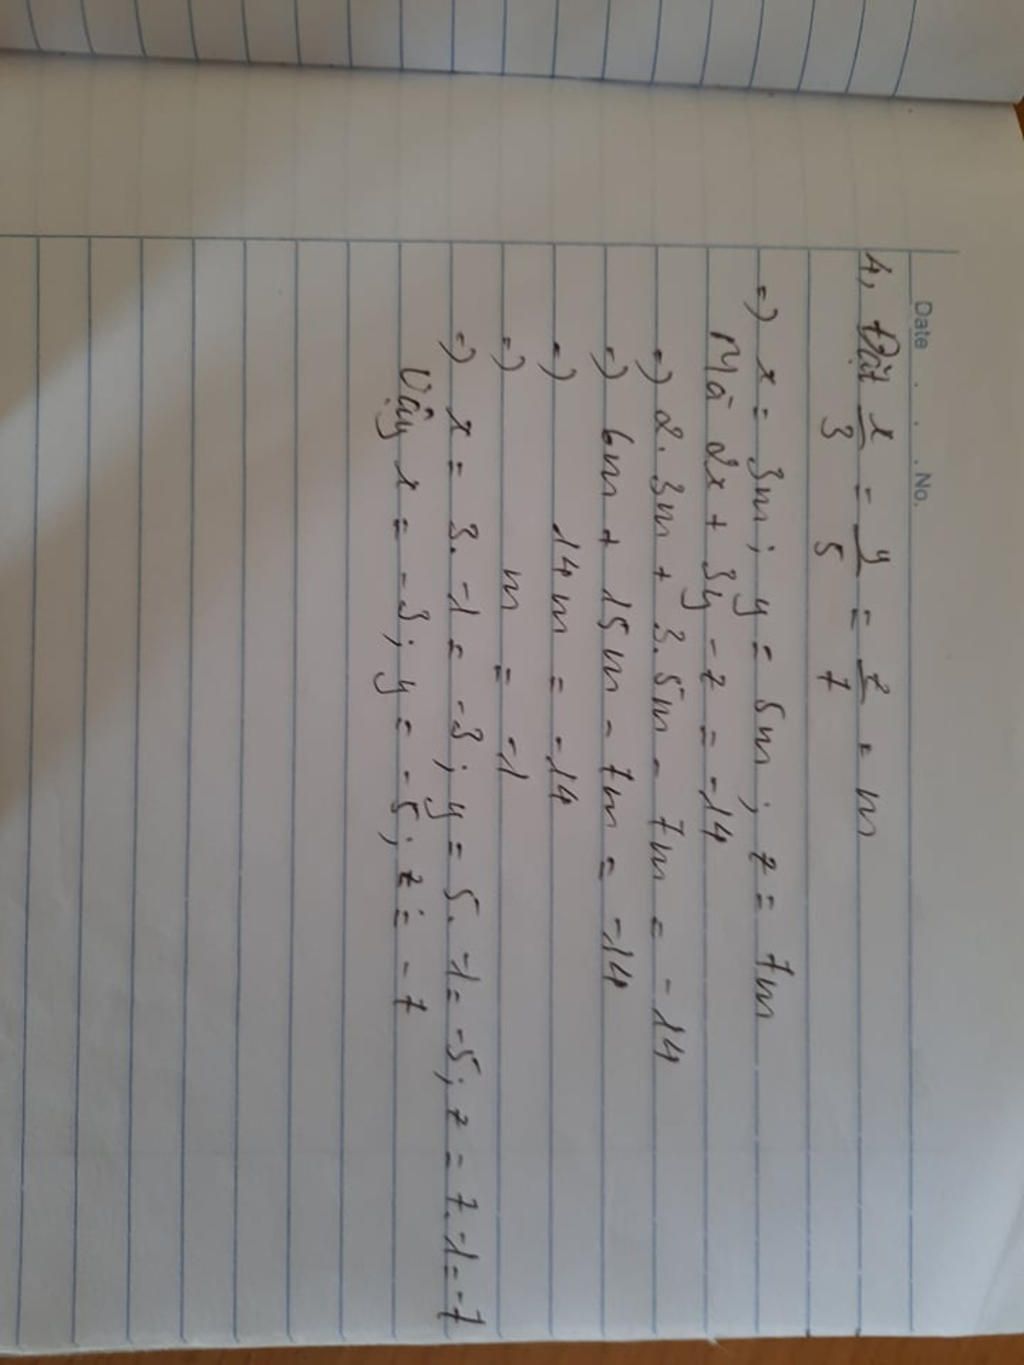 Date . . . . No.
1, Đặt x/3 = y/5 = z/7 = m
=) x = 3m; y = 5m; z = 7m
Mà 2x + 3y - z = -14
=) 2.3m + 3.5m - 7m = -14
=) 6m + 15m - 7m = -14
=) 14m = -14
=) m = -1
=) x = 3.-1 = -3; y = 5.-1 = -5; z = 7.-1 = -7
Vậy x = -3; y = -5; z = -7